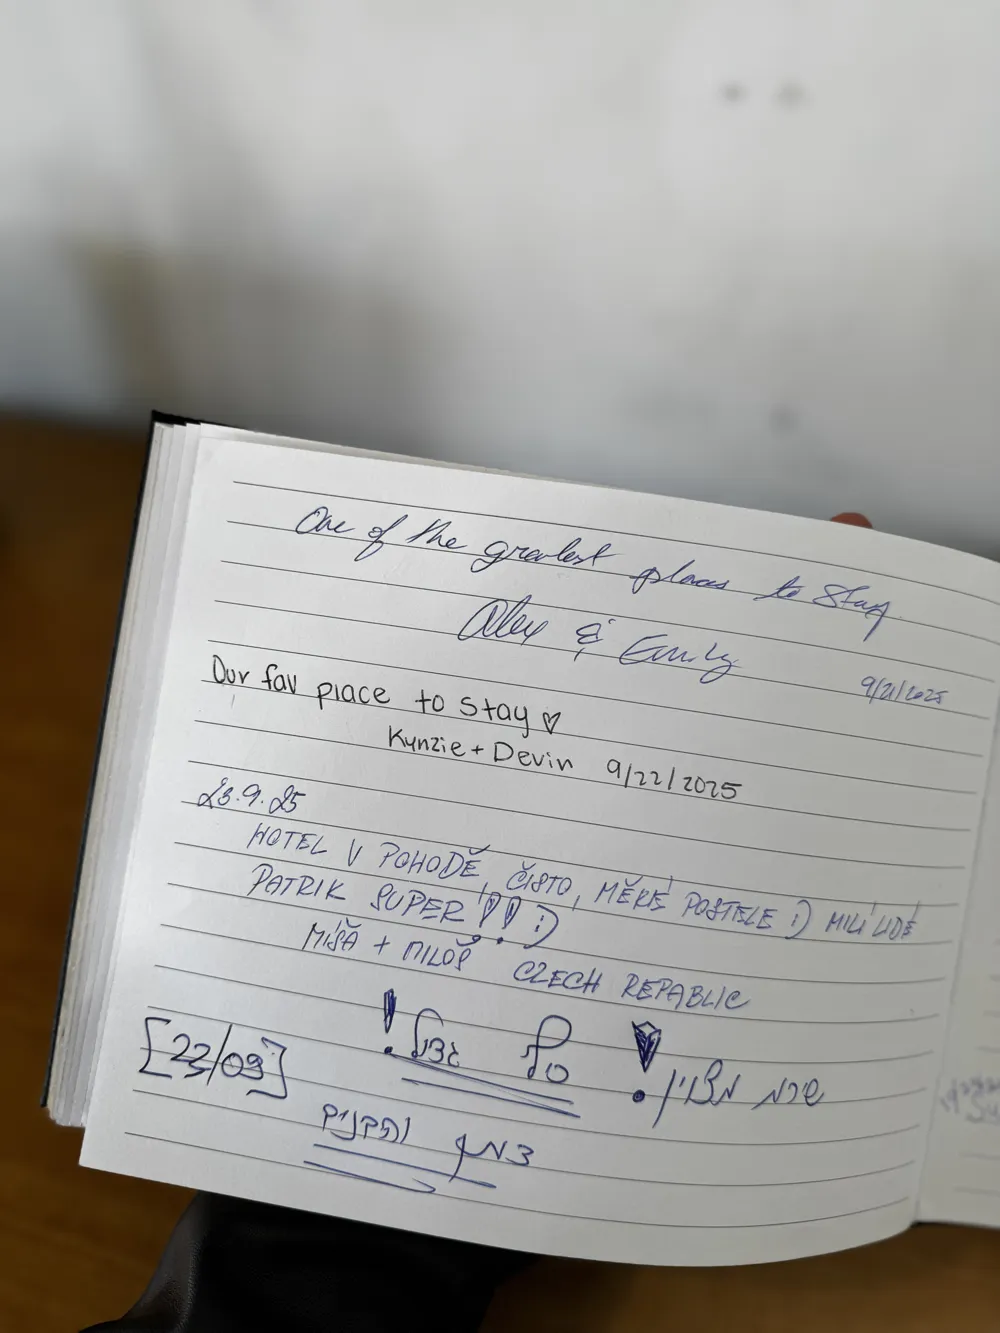 One of the greatest places to stay.
Alex & Emily
9/21/2025
Our fav place to stay ♡
Kynzie + Devin 9/22/2025
23.9.25
HOTEL V POHODĚ, ČISTO, MĚKÉ POSTELE :) MILÍ LIDÉ
PATRIK SUPER!! :)
MÍŠA + MILOŠ CZECH REPABLIC
שירות מצוין! סוף
[23/09]
צוות